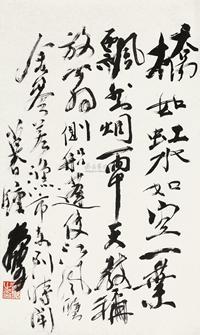 橋如虹水如空一葉
飄然烟雨中天教稱
放翁側船篷使江風蟹
舍參差漁市東到時聞
暮鐘